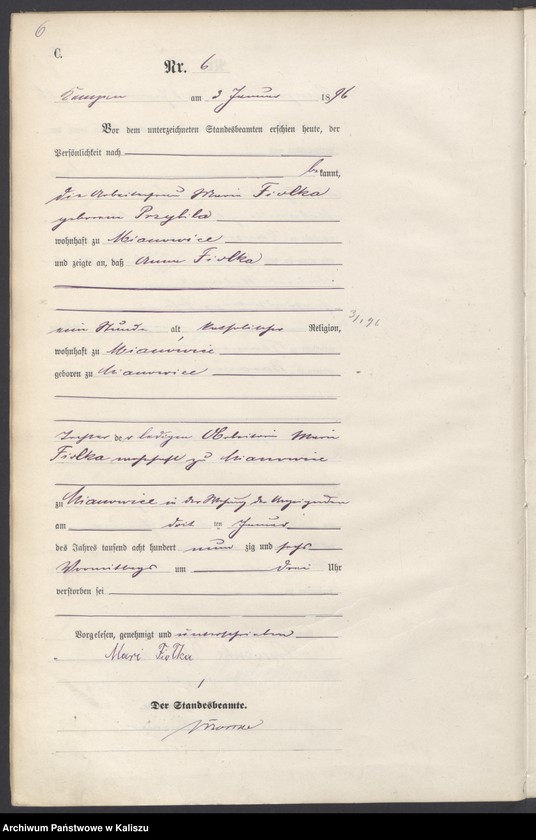 6
C.
Nr. 6
Kempen am 3 Januar 1896
Vor dem unterzeichneten Standesbeamten erschien heute, der
Persönlichkeit nach
bekannt,
die Arbeiterfrau Marie Fiolka
geborene Przybila
wohnhaft zu Mianowice
und zeigte an, daß Anna Fiolka
3/1 96
eine Stunde alt, katholischer Religion,
wohnhaft zu Mianowice
geboren zu Mianowice
Tochter der ledigen Arbeiterin Marie
Fiolka wohnhaft zu Mianowice
zu Mianowice in der Wohnung der Anzeigenden
am drei ten Januar
des Jahres tausend acht hundert neun zig und sechs
Vormittags um drei Uhr
verstorben sei
Vorgelesen, genehmigt und unterschrieben
Mari Fiolka
Der Standesbeamte.
Archiwum Państwowe w Kaliszu